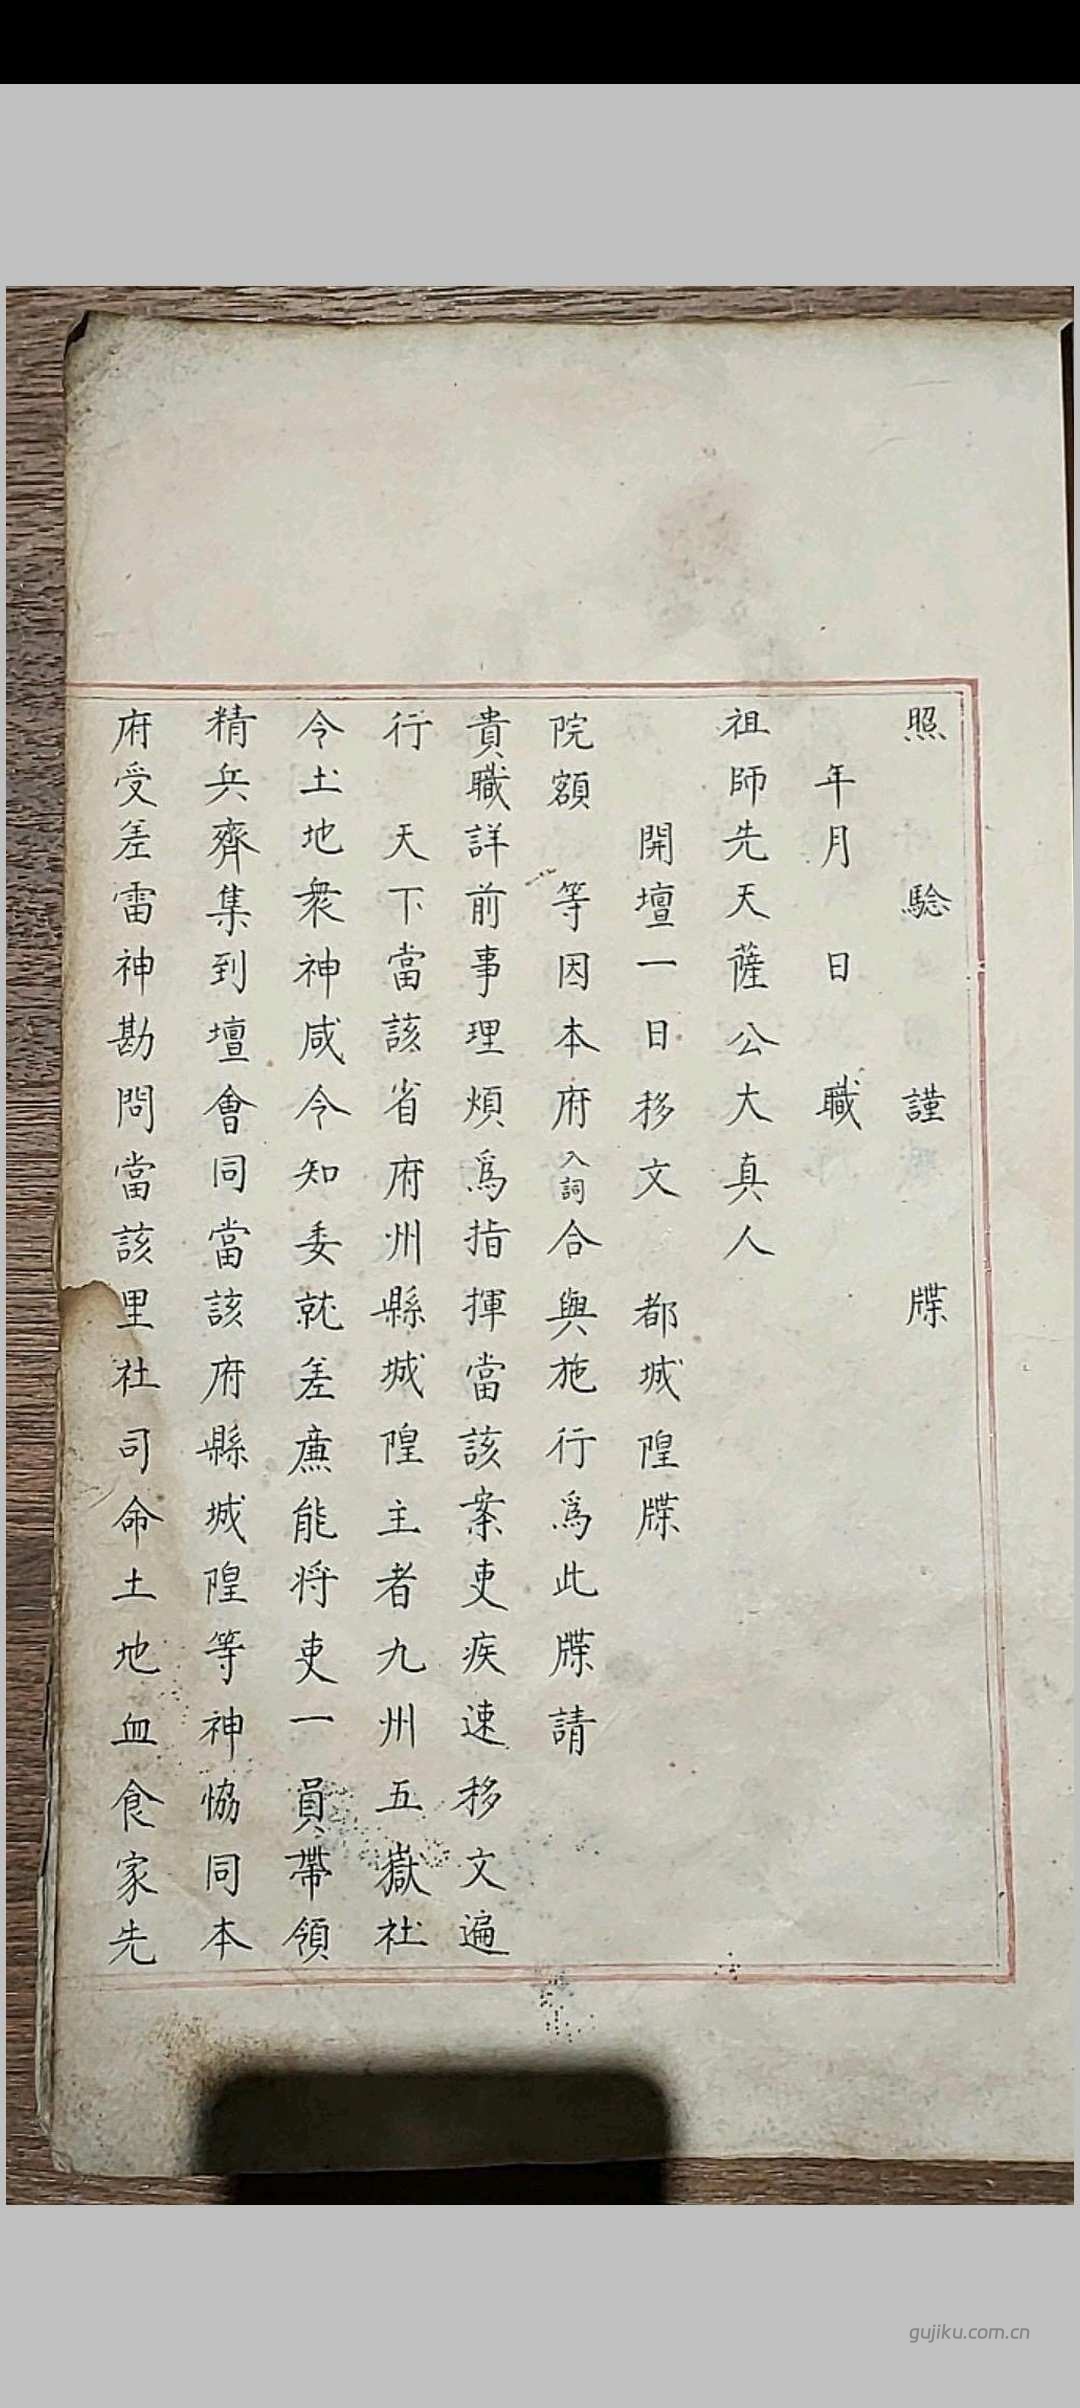 照驗謹牒
年月日職
祖師先天薩公大真人
開壇一日移文都城隍牒
院額等因本府入詞合與施行爲此牒請
貴職詳前事理煩爲指揮當該案吏疾速移文遍
行天下當該省府州縣城隍主者九州五嶽社
令土地衆神咸令知委就差廉能将吏一員帶領
精兵齊集到壇會同當該府縣城隍等神恊同本
府受差雷神勘問當該里社司命土地血食家先
gujiku.com.cn